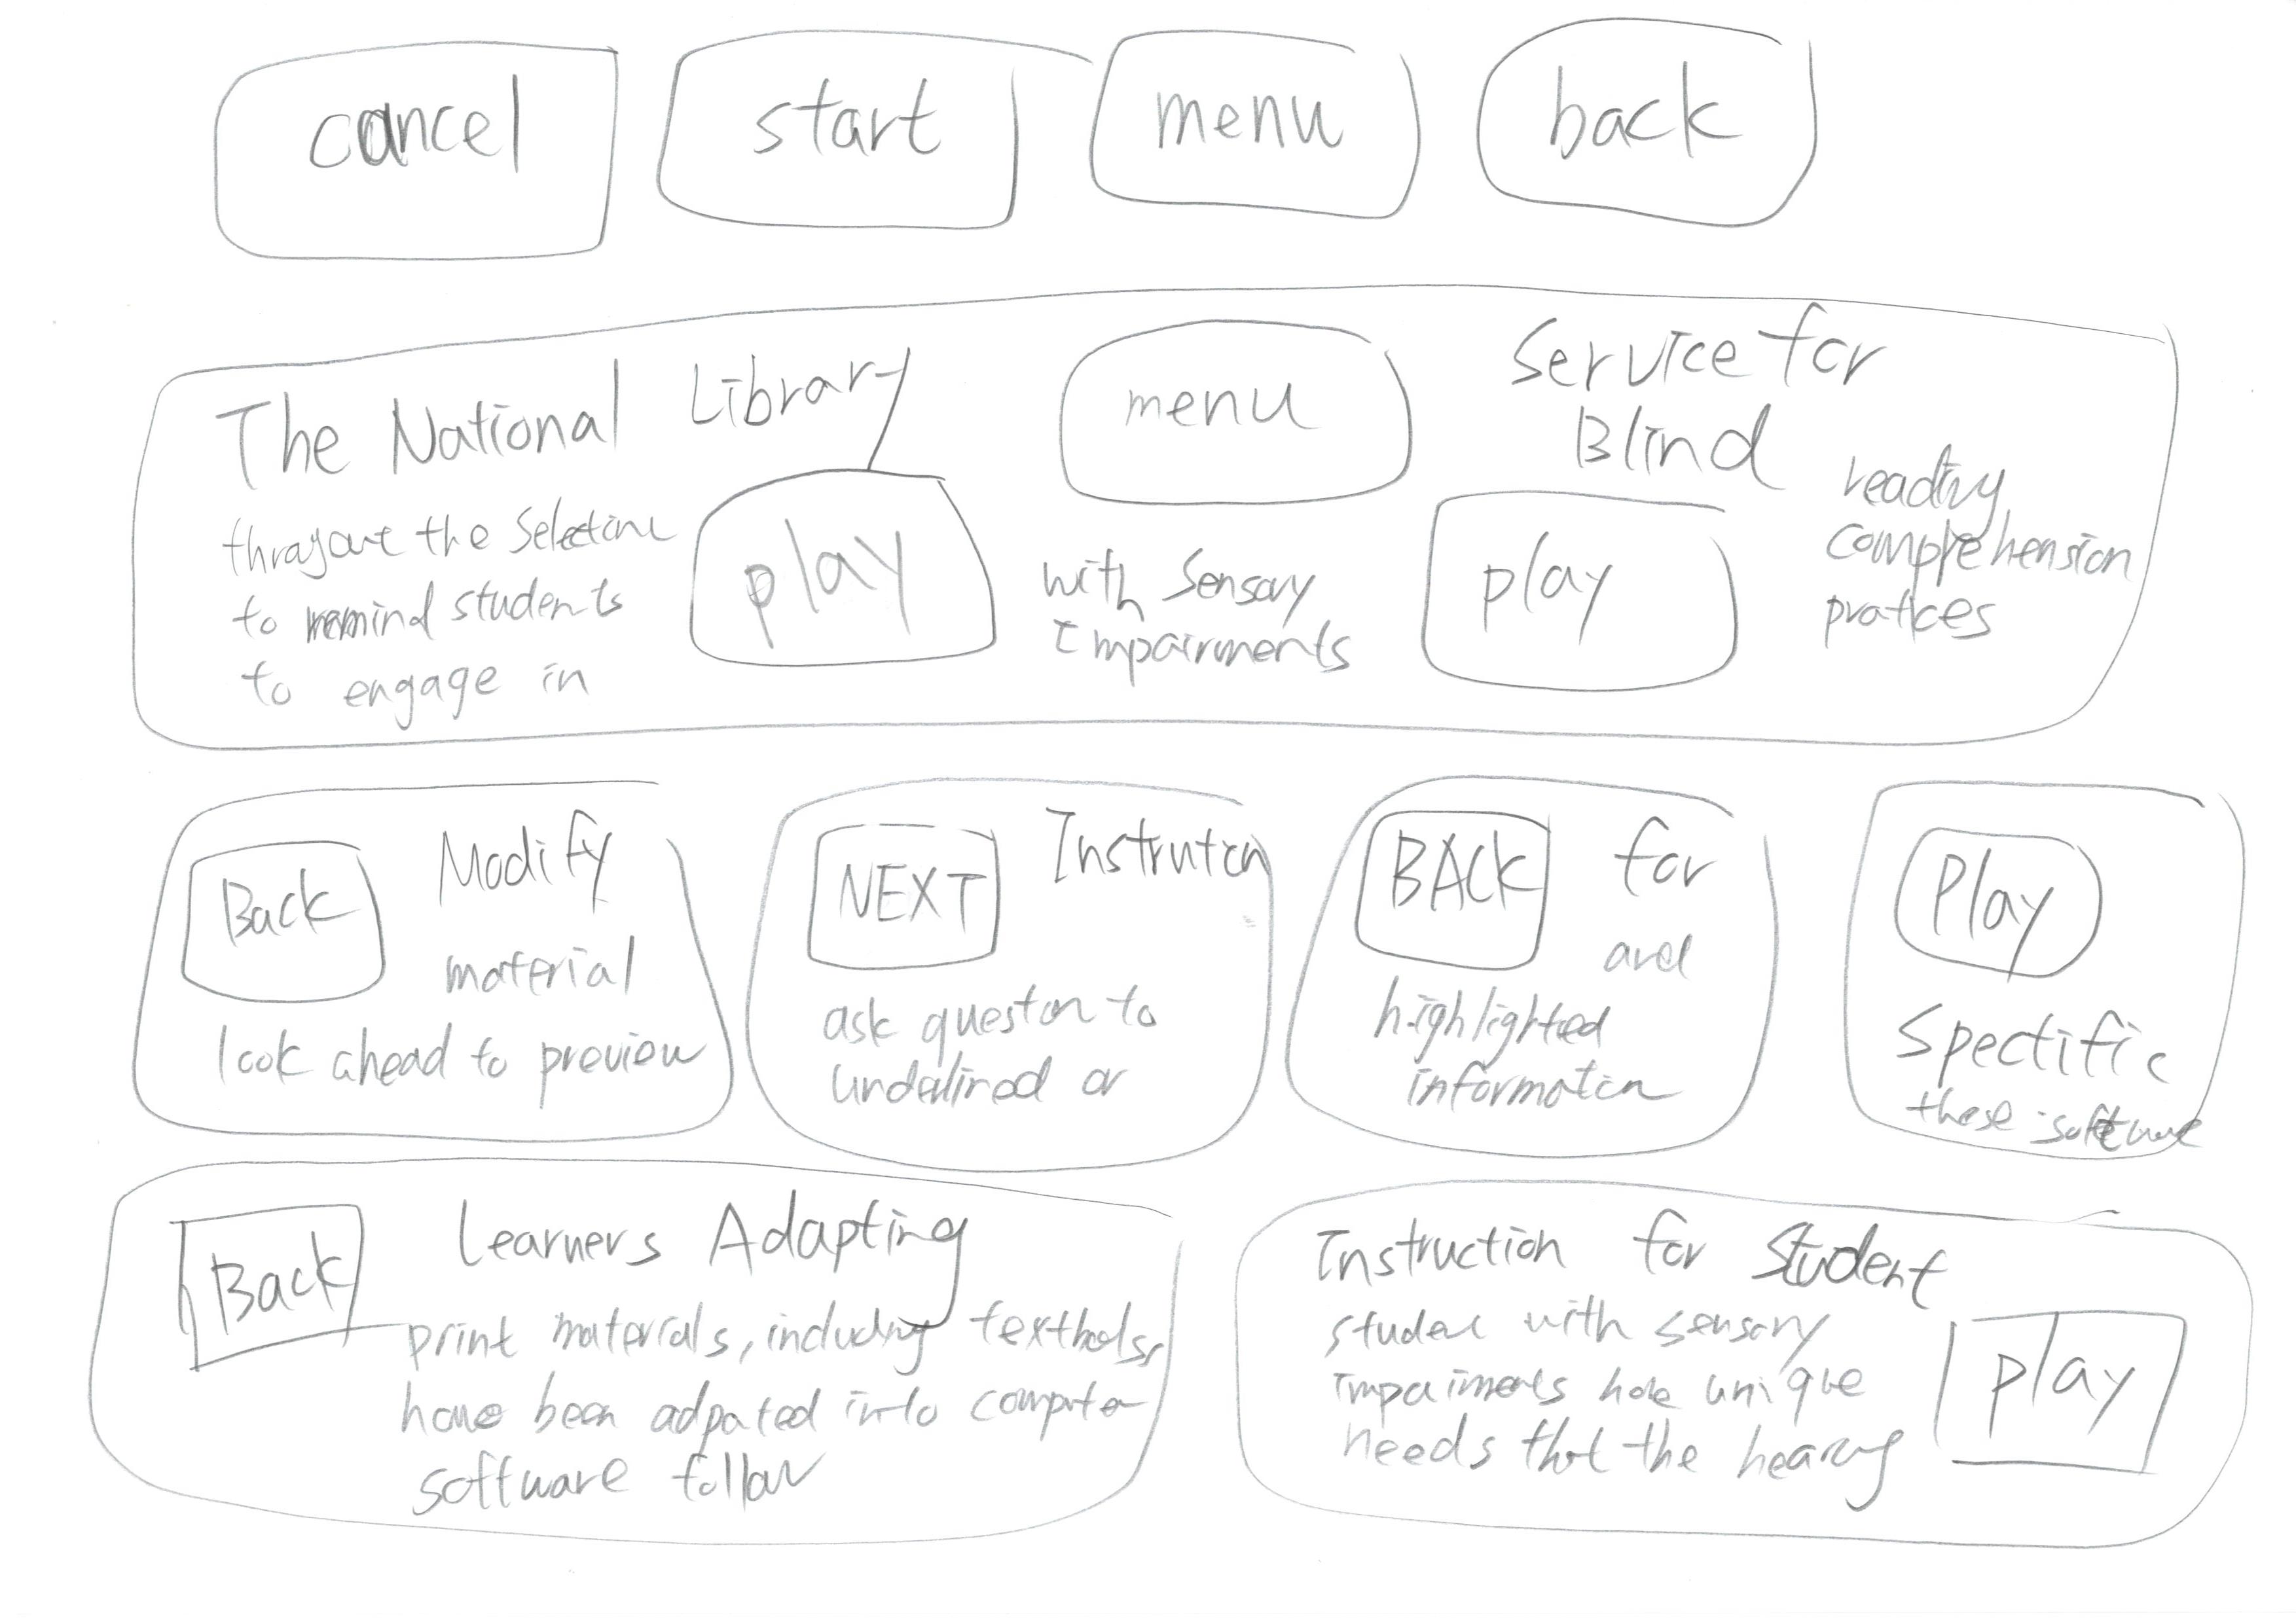 cancel
start
menu
back
The National Library
menu
Service for
Blind
the Selectine
to remind students
to engage in
play
with Sensory
Impairments
play
reading
comprehension
pratices
Back
Modify
material
look ahead to preview
NEXT
Instrution
ask queston to
underlined or
BACK
for
and
highlighted
information
Play
Spectific
these software
Back
Learners Adapting
print materials, including
have been adpated into computer
software follow
Instruction for Student
with sensory
unique
needs that the hearing
play